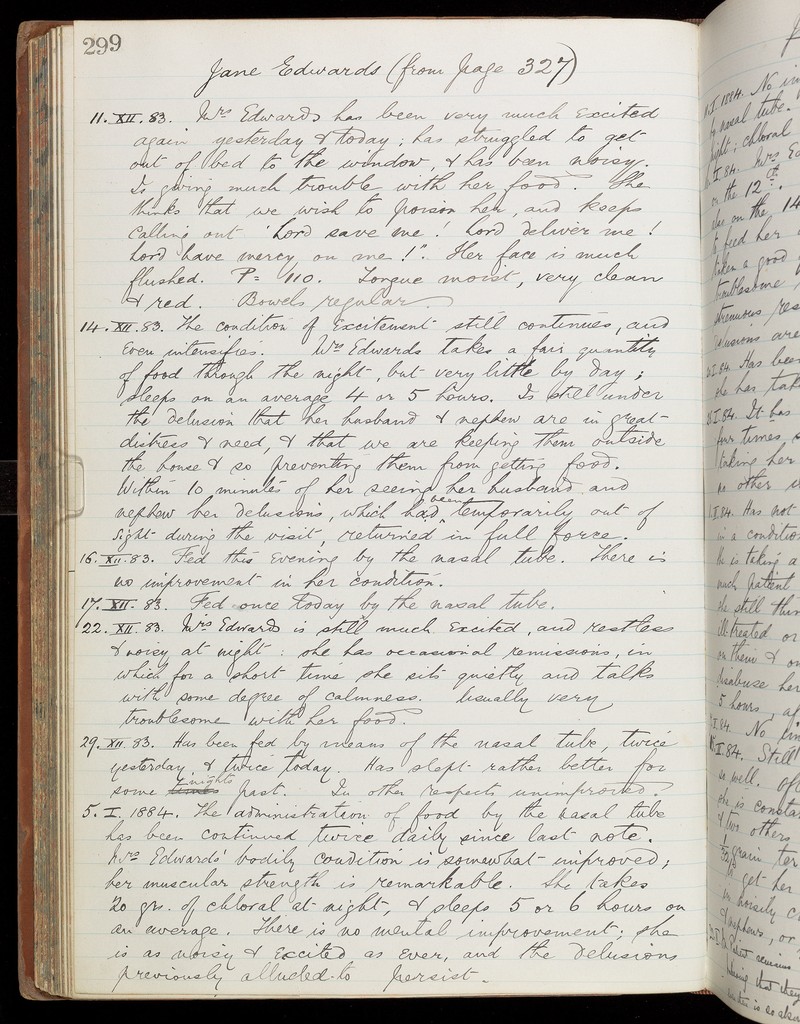 299
Jane Edwards (from page 327)
11. XII. 83. Mrs Edwards has been very much excited
again yesterday & today; has struggled to get
out of bed to the window, & has been noisy.
Is giving much trouble with her food. She
thinks that we wish to poison her, and keeps
calling out 'Lord save me! Lord deliver me!
Lord have mercy on me!". Her face is much
flushed. P = 110. Tongue moist, very clean
& red. Bowels regular.
14. XII. 83. The condition of excitement still continues, and
even intensifies. Mrs Edwards takes a fair quantity
of food through the night, but very little by day;
sleeps on an average 4 or 5 hours. Is still under
the delusion that her husband & nephew are in great
distress & need, & that we are keeping them outside
the house & so preventing them from getting food.
Within 10 minutes of her seeing her husband and
nephew her delusions, which had been temporarily out of
sight during the visit, returned in full force.
16. XII. 83. Fed this evening by the nasal tube. There is
no improvement in her condition.
17. XII. 83. Fed once today by the nasal tube.
22. XII. 83. Mrs Edwards is still much excited, and restless
& noisy at night: she has occasional remissions, in
which for a short time she sits quietly and talks
with some degree of calmness. Usually very
troublesome with her food.
29. XII. 83. Has been fed by means of the nasal tube, twice
yesterday & twice today. Has slept rather better for
some nights past. In other respects unimproved.
5. I. 1884. The administration of food by the nasal tube
has been continued twice daily since last note.
Mrs Edwards' bodily condition is somewhat improved;
her muscular strength is remarkable. She takes
20 grs. of chloral at night, & sleeps 5 or 6 hours on
an average. There is no mental improvement; she
is as noisy & excited as ever, and the delusions
previously alluded to persist.
I. 1884. No
nasal tube.
night; chloral
I. 84. Mrs
on the 12th.
also on the 14
to feed her
taken a good
troublesome
strenuous
delusions are
I. 84. Has been
she has
I. 84. It has
four times,
taking her
no other
I. 84. Has not
in a condition
She is taking a
much patient
she still
ill-treated or
on them &
disabuse her
5 hours,
I. 84. No
I. 84. Still
so well.
she is
& two others
grain
get her
noisily
& nephews, or
that they